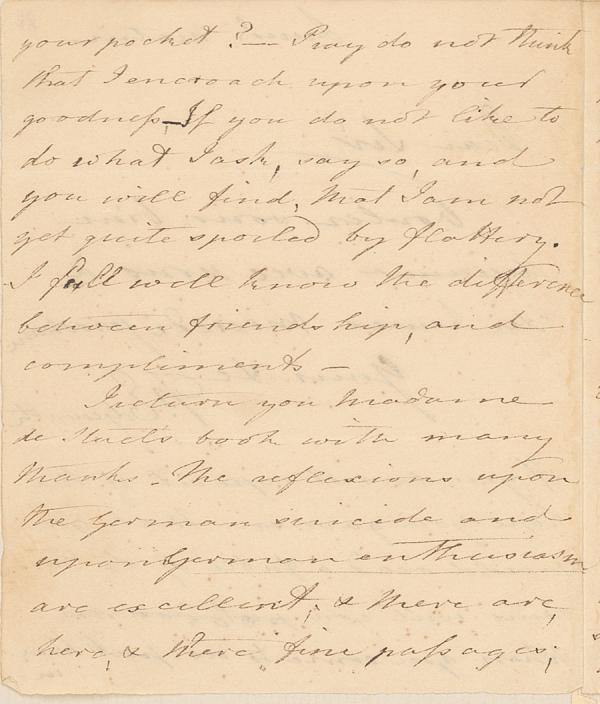 your pocket ? — Pray do not think
that I encroach upon your
goodness, If you do not like to
do what I ask, say so, and
you will find, that I am not
yet quite spoiled by flattery.
I full well know the difference
between friendship, and
compliments —
I return you Madame
de Stael's book with many
thanks. The reflexions upon
the German suicide and
upon German enthusiasm
are excellent, & there are,
here, & there, fine passages;